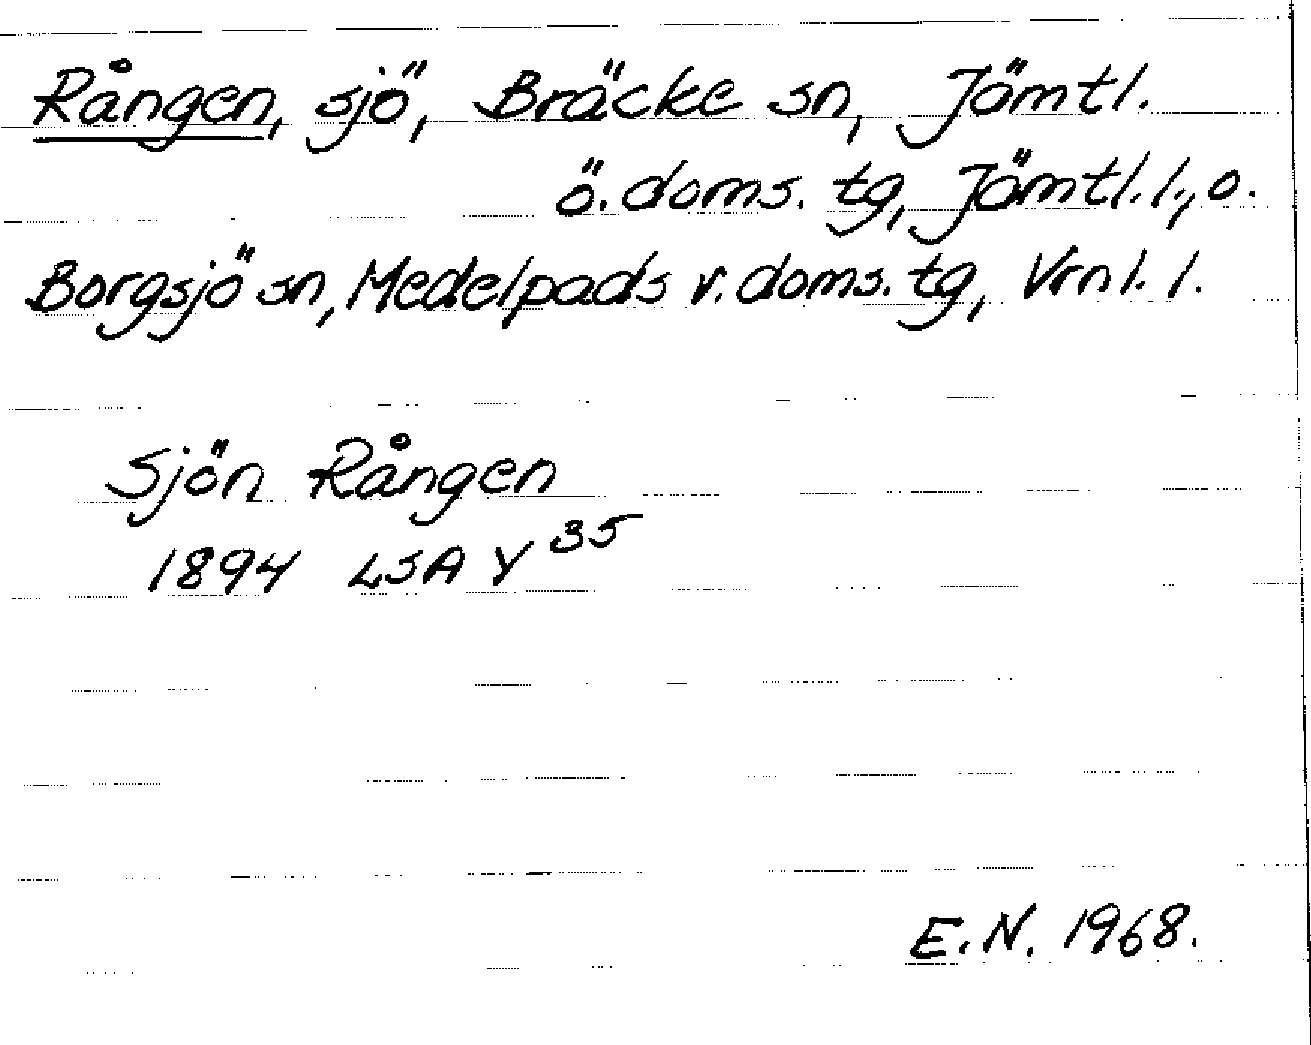 Rången, sjö, Bräcke sn, Jämtl.
ö. doms. tg, Jämtl. l., o.
Borgsjö sn, Medelpads v. doms. tg, Vrnl. l.
Sjön Rången
1894 LSA Y 35
E.N. 1968.